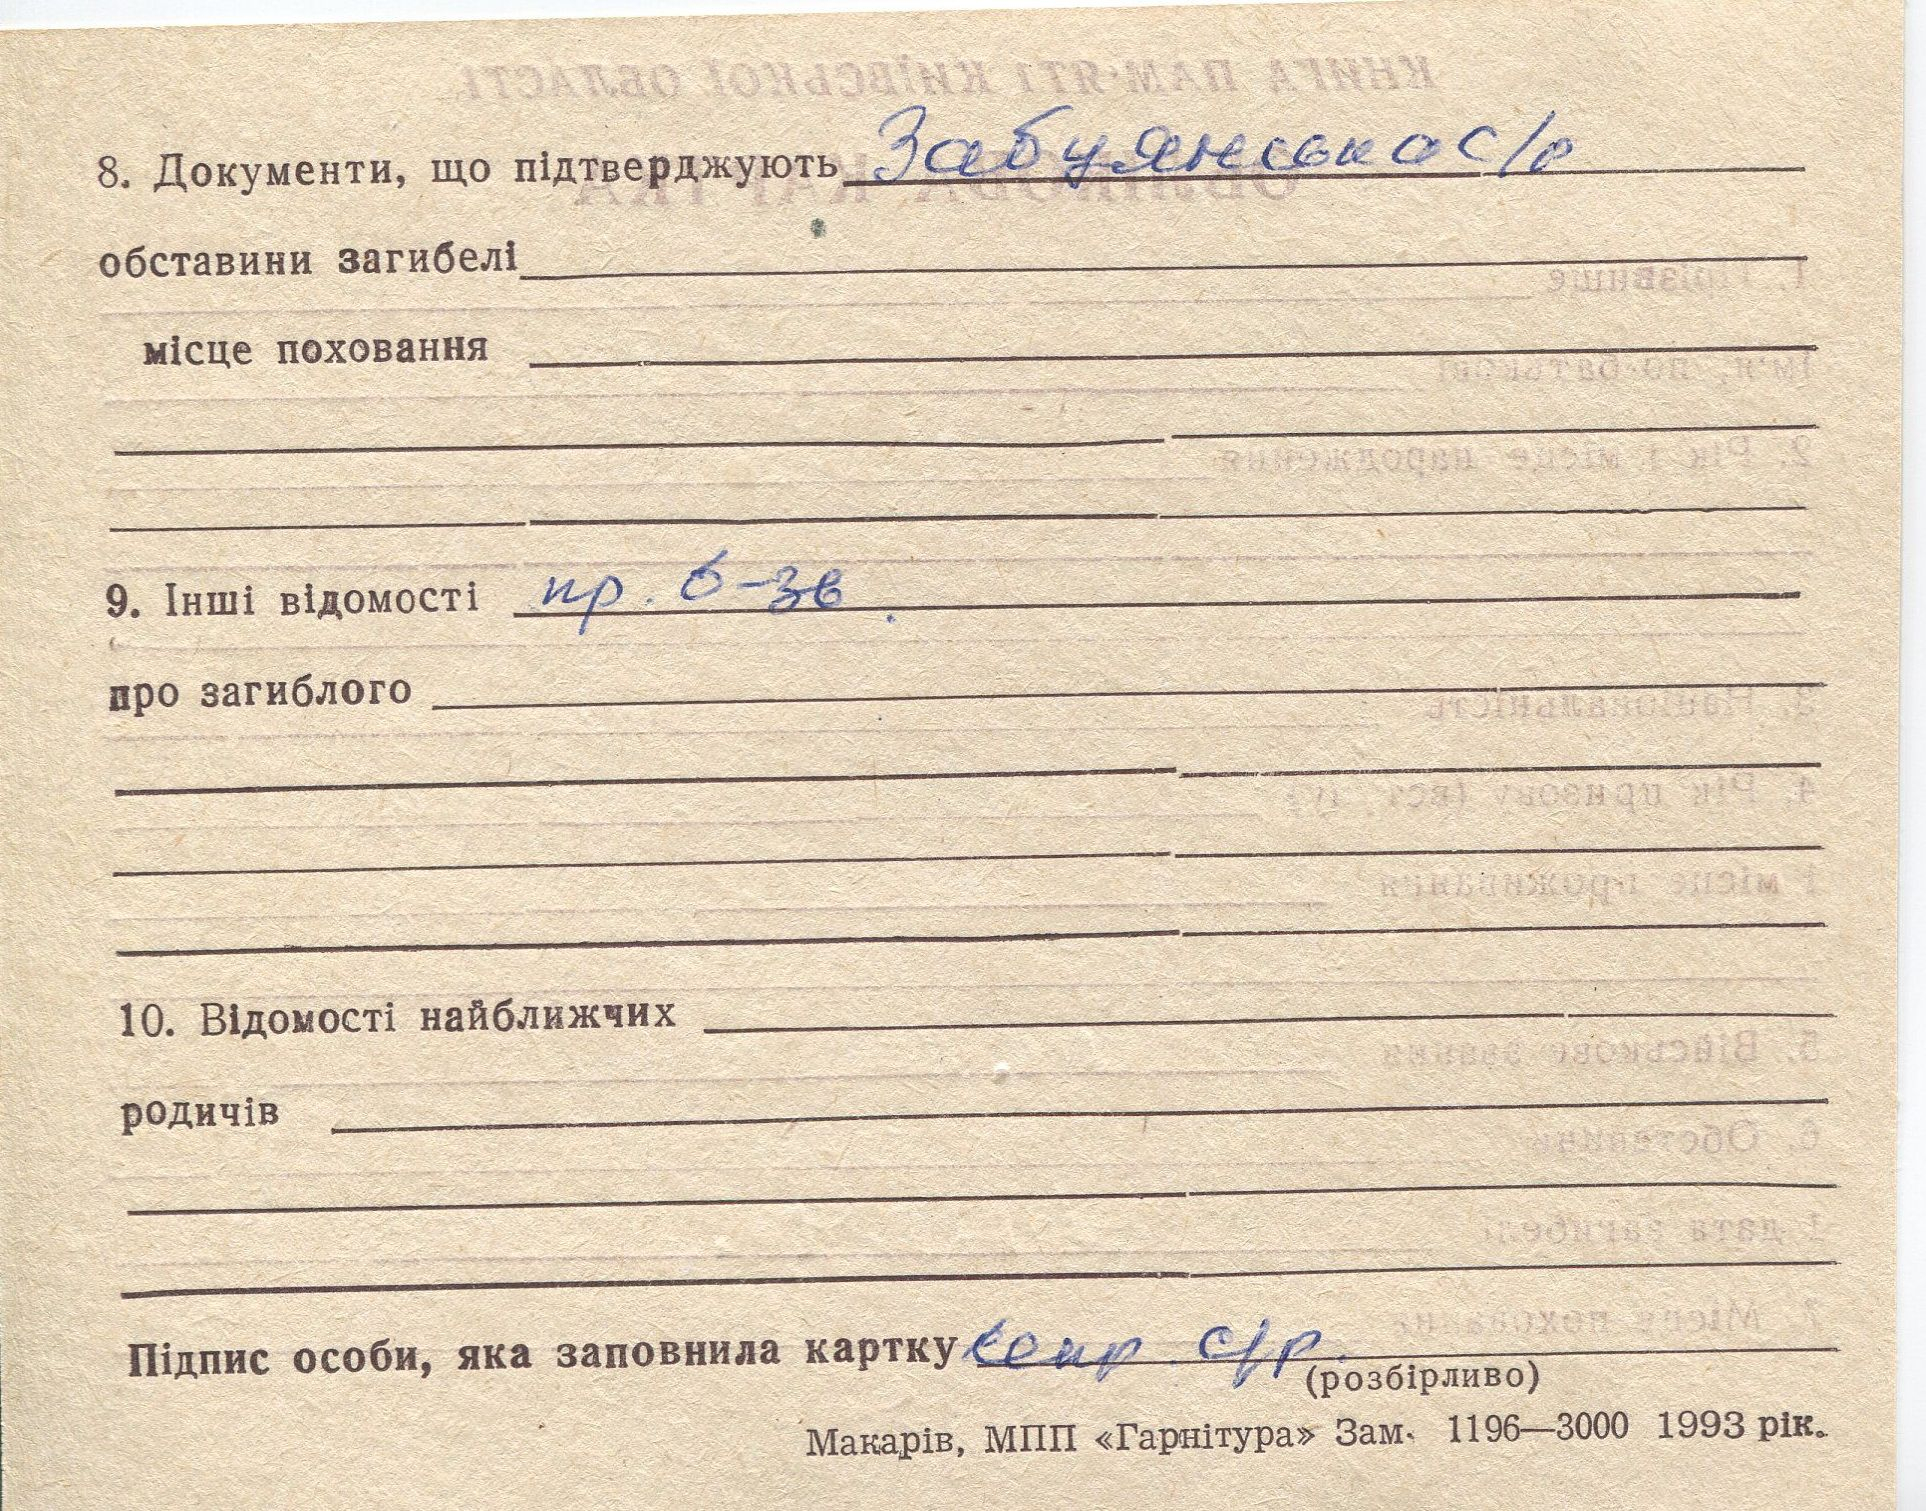 8. Документи, що підтверджують Забуянська с/р
обставини загибелі
місце поховання
9. Інші відомості пр. б-зв.
про загиблого
10. Відомості найближчих
родичів
Підпис особи, яка заповнила картку секр. с/р.
(розбірливо)
Макарів, МПП «Гарнітура» Зам. 1196—3000 1993 рік.